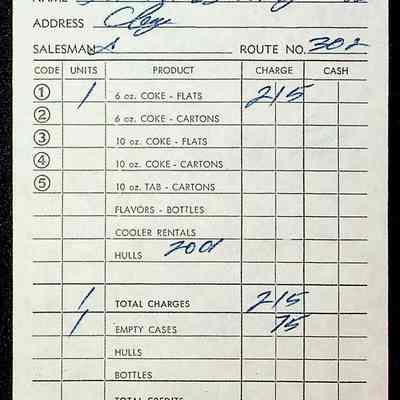 ADDRESS Clay
SALESMAN ROUTE NO. 302
CODE UNITS PRODUCT CHARGE CASH
1 1 6 oz. COKE - FLATS 2 15
2 6 oz. COKE - CARTONS
3 10 oz. COKE - FLATS
4 10 oz. COKE - CARTONS
5 10 oz. TAB - CARTONS
FLAVORS - BOTTLES
COOLER RENTALS
HULLS
1 TOTAL CHARGES 2 15
1 EMPTY CASES 75
HULLS
BOTTLES
TOTAL CREDITS